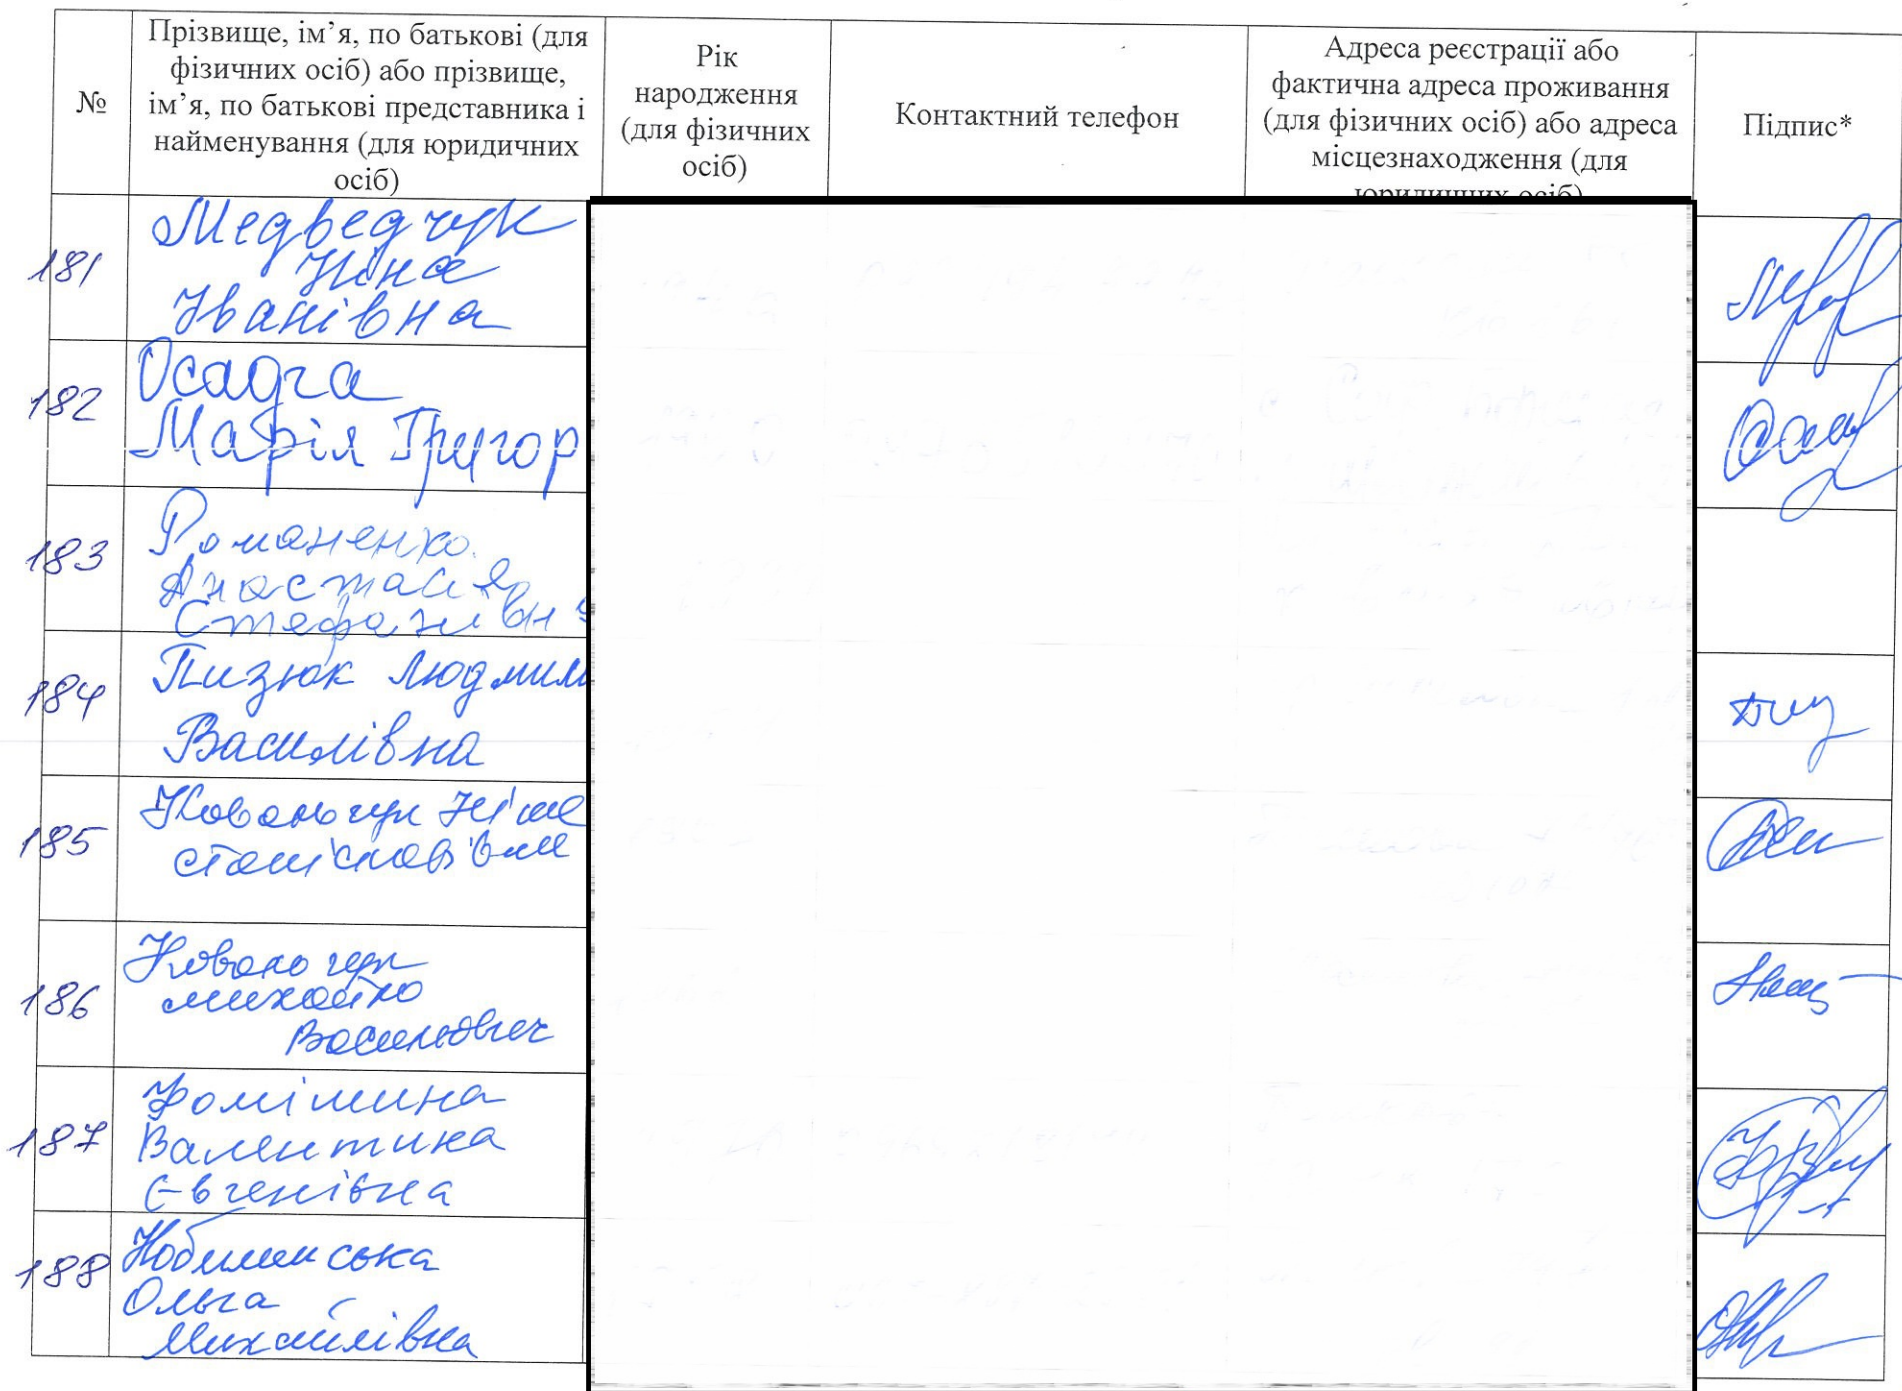 №
Прізвище, ім’я, по батькові (для
фізичних осіб) або прізвище,
ім’я, по батькові представника і
найменування (для юридичних
осіб)
Рік
народження
(для фізичних
осіб)
Контактний телефон
Адреса реєстрації або
фактична адреса проживання
(для фізичних осіб) або адреса
місцезнаходження (для
юридичних осіб)
Підпис*
181
Медведчук
Ніна
Іванівна
182
Осадча
Марія Григор
183
Романенко
Анастасія
Стефанівн
184
Пизюк Людмил
Василівна
185
Ковальчук Ніна
Станіславівна
186
Ковальчук
Михайло
Васильович
187
Фоміщина
Валентина
Євгенівна
188
Ольга
Михайлівна